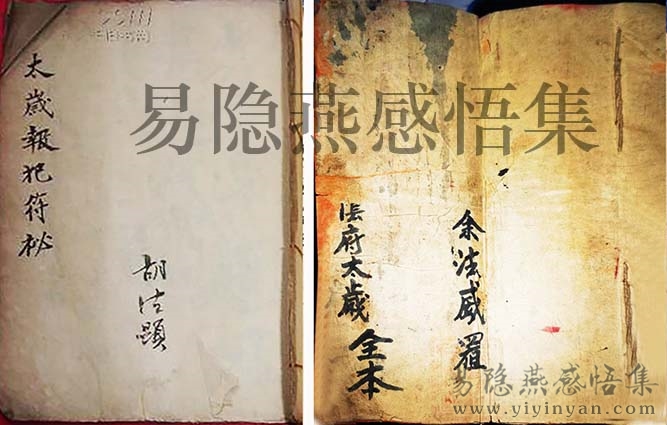 55111
太歲報犯符祕
胡法顕
易隐燕感悟集
法府太歲全本
余法威置
易隐燕感悟集
www.yiyinyan.com